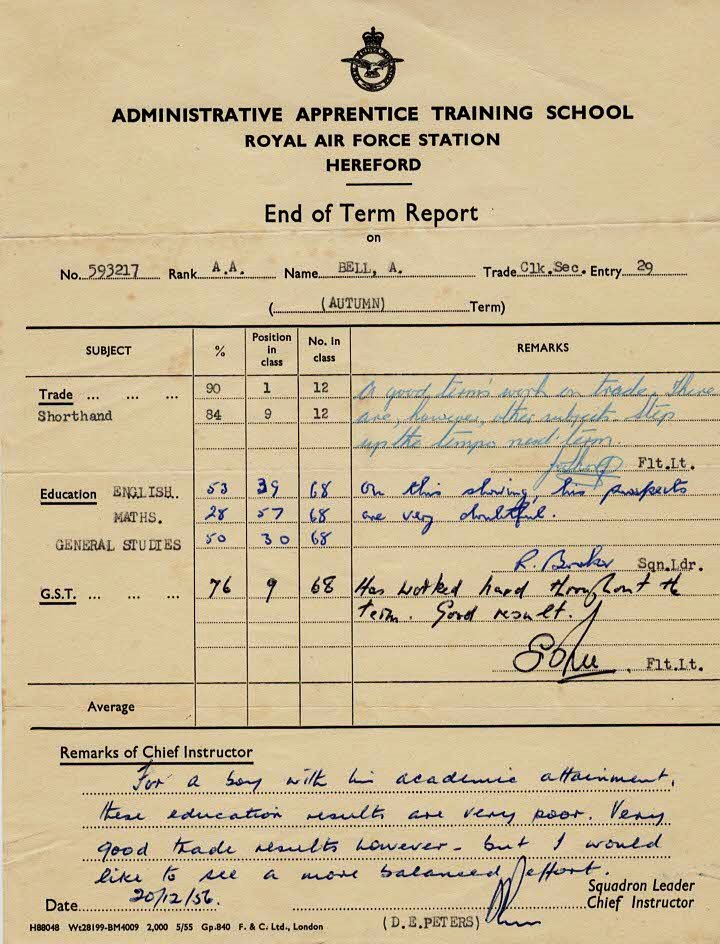 ADMINISTRATIVE APPRENTICE TRAINING SCHOOL
ROYAL AIR FORCE STATION
HEREFORD
End of Term Report
on
No. 593217 Rank A.A. Name BELL, A. Trade Clk.Sec. Entry 29
( (AUTUMN) Term)
SUBJECT % Position in class No. in class REMARKS
Trade ... ... ... 90 1 12 A good term's work in trade. There
Shorthand 84 9 12 are, however, other subjects. Step
up the tempo next term.
Flt.Lt.
Education ENGLISH. 53 39 68 On this showing, his prospects
MATHS. 28 57 68 are very doubtful.
GENERAL STUDIES 50 30 68
Sqn.Ldr.
G.S.T. ... ... ... 76 9 68 Has worked hard throughout the
term. Good result.
Flt.Lt.
Average
Remarks of Chief Instructor
For a boy with his academic attainment,
these education results are very poor. Very
good trade results however - but I would
like to see a more balanced effort.
Squadron Leader
Date 20/12/56. Chief Instructor
(D.E.PETERS)
H88048 Wt28199-BM4009 2,000 5/55 Gp.840 F. & C. Ltd., London